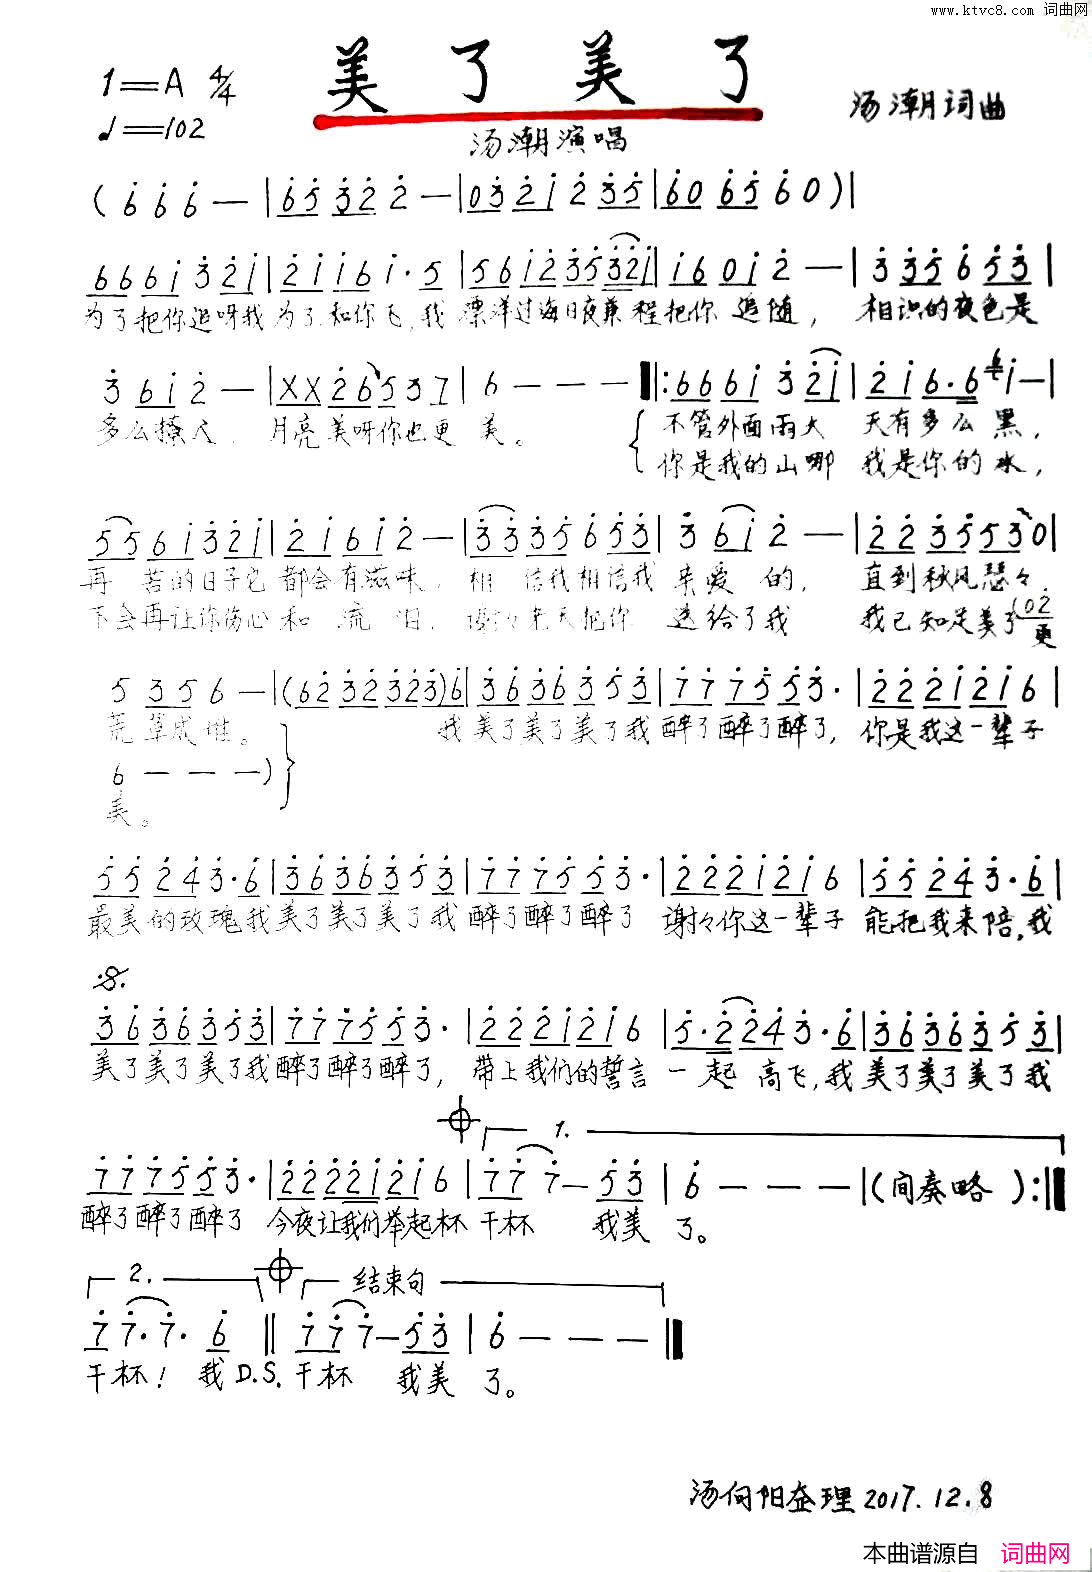 www.ktvc8.com 词曲网
美了美了
1=A 4/4
♩=102
汤潮词曲
汤潮演唱
(6 6 6 — | 65 32 2 — | 03 21 2 35 | 60 65 60) |
666i 3 2i | 2i i6 i·5 | 56i2353 2i | i60i 2 — | 3 35 6 53 |
为了把你追呀我为了和你飞,我 漂洋过海日夜兼程把你追随, 相识的夜色是
3 6i 2 — | XX 26 53 7 | 6 — — — ‖: 666i 3 2i | 2i6·6 i — |
多么撩人, 月亮美呀你也更美。 不管外面雨大 天有多么黑,
你是我的山哪 我是你的水,
556i32i | 2i6i2 — | 3335653 | 3 6i 2 — | 22 35530 |
再苦的日子它都会有滋味, 相信我相信我 亲爱的, 直到秋风瑟々,
不会再让你伤心和流泪, 谢谢老天把你 送给了我 我已知足美了 102
更
5 35 6 — | (6232323)6 | 3636353 | 777553· | 222i2i6 |
荒草成堆。 我美了美了美了我醉了醉了醉了, 你是我这一辈子
6 — — —)
美。
55243·6 | 3636353 | 777553· | 222i2i6 | 55243·6 |
最美的玫瑰我美了美了美了我醉了醉了醉了 谢々你这一辈子 能把我来陪,我
3636353 | 777553· | 222i2i6 | 5·2243·6 | 3636353 |
美了美了美了我醉了醉了醉了, 带上我们的誓言 一起高飞,我美了美了美了我
1.
777553· | 2222i2i6 | 77 7 — 53 | 6 — — — | (间奏略):‖
醉了醉了醉了 今夜让我们举起杯 干杯 我美了。
2. 结束句
77·7· 6 ‖ 777 — 53 | 6 — — — ‖
干杯! 我 D.S. 干杯 我美了。
汤向阳整理2017.12.8
本曲谱源自 词曲网